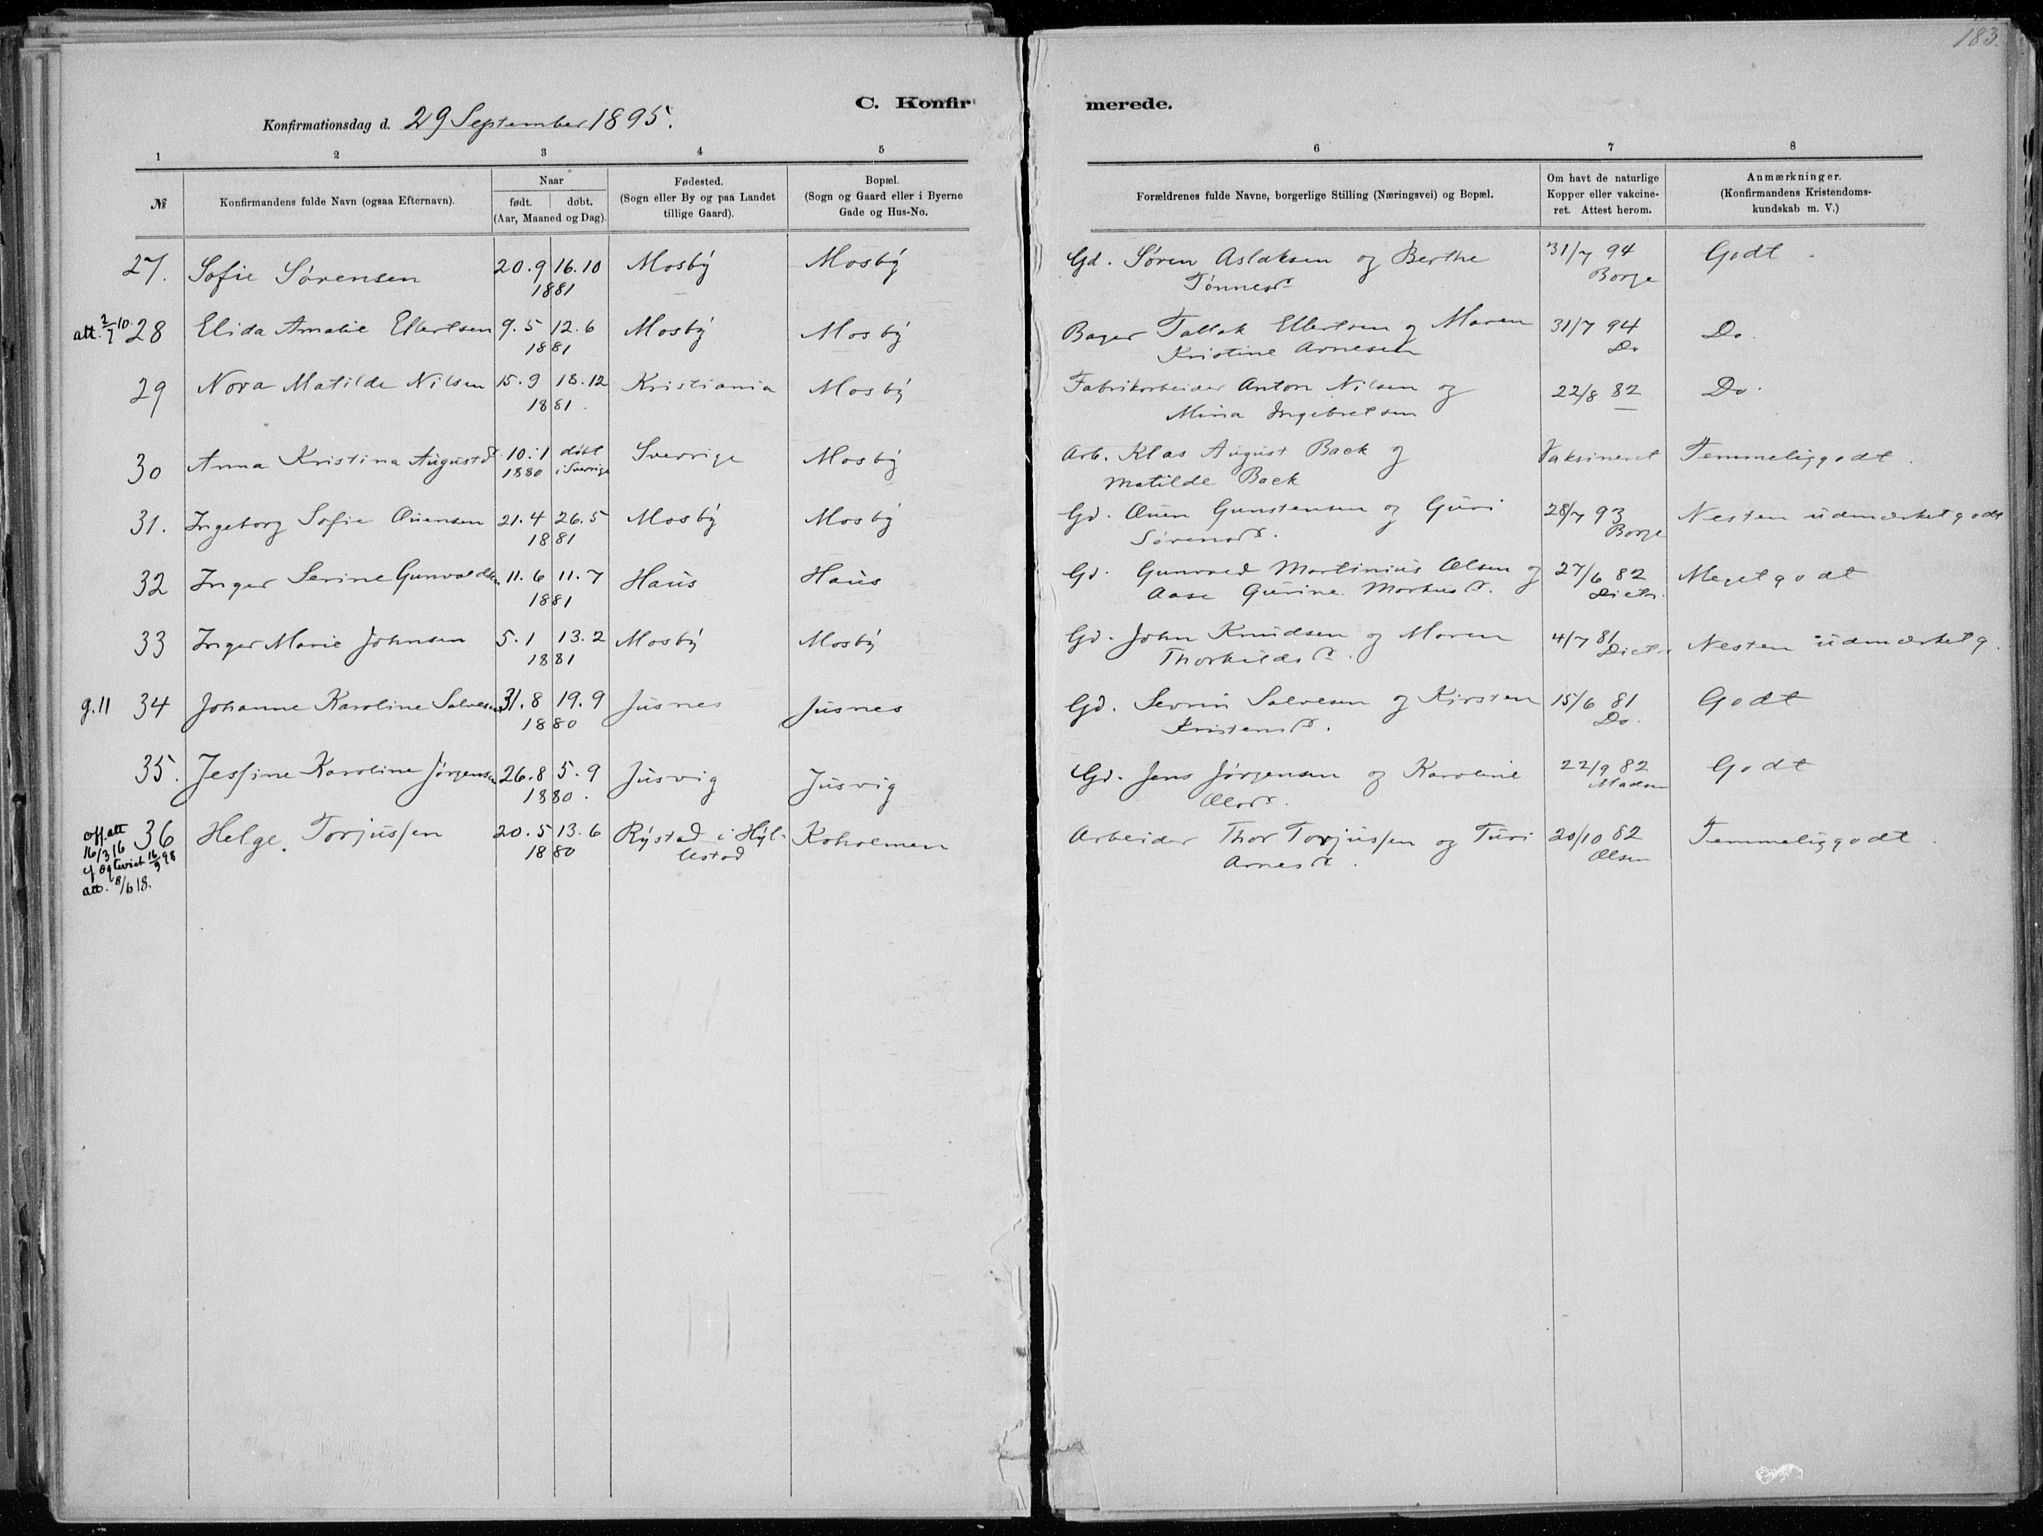 183.
C. Konfir
merede.
Konfirmationsdag d. 29 September 1895.
1 2 3 4 5 6 7 8
№ Konfirmandens fulde Navn (ogsaa Efternavn).
Naar
født. døbt.
(Aar, Maaned og Dag).
Fødested.
(Sogn eller By og paa Landet
tillige Gaard).
Bopæl.
(Sogn og Gaard eller i Byerne
Gade og Hus-No.
Forældrenes fulde Navne, borgerlige Stilling (Næringsvei) og Bopæl.
Om havt de naturlige
Kopper eller vakcine-
ret. Attest herom.
Anmærkninger.
(Konfirmandens Kristendoms-
kundskab m. V.)
27. Sofie Sørensen 20.9 16.10 Mosby Mosby Gd. Søren Aslaksen og Berthe 31/7 94 Godt.
1881 Tønnesd. Borge
att. 2/7 10 28 Elida Amalie Ellertsen 9.5 12.6 Mosby Mosby Bager Tallak Ellertsen og Maren 31/7 94 Do.
1881 Kristine Arnesen Do
29 Nora Matilde Nilsen 15.9 18.12 Kristiania Mosby Fabrikarbeider Anton Nilsen og 22/8 82 Do.
1881. Mina Ingebretsen
30 Anna Kristina Augustd. 10.1 døbt Sverrige Mosby Arb. Klas August Back og Vaksineret Temmelig godt.
1880 i Sverrige Matilde Back
31. Ingeborg Sofie Ouensen 21.4 26.5 Mosby Mosby Gd. Ouen Gunstensen og Guri 28/7 93 Nesten udmærket godt
1881 Sørensd. Borge
32 Inger Serine Gunvaldsen 11.6 11.7 Haus Haus Gd. Gunvald Martinius Olsen og 27/6 82 Meget godt
1881 Aase Gurine Markusd. Dietr.
33 Inger Marie Johnsen 5.1 13.2 Mosby Mosby Gd. John Knudsen og Maren 4/7 81 Nesten udmærket g.
1881 Thorkildsd. Dietr
g. 11 34 Johanne Karoline Salvesen 31.8 19.9 Jusnes Jusnes Gd. Sevrin Salvesen og Kirsten 15/6 81 Godt
1880 Kristensd. Do.
35. Jessine Karoline Jørgensen 26.8 5.9 Jusvig Jusvig Gd. Jens Jørgensen og Karoline 22/9 82 Godt
1880. Olsd. Madsen
off. att 36 Helge Torjussen 20.5 13.6 Rystad i Hyl- Koholmen Arbeider Thor Torjussen og Turi 20/10 82 Temmelig godt.
16/3 16 1880 lestad Arnesd. Olsen
16/9 98
att. 8/6 18.